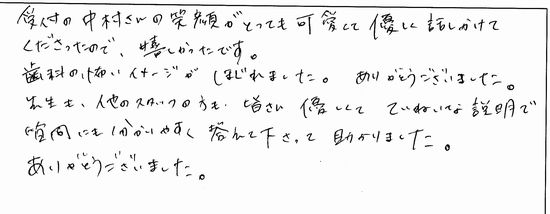 受付の中村さんの笑顔がとっても可愛くて優しく話しかけて
くださったので、嬉しかったです。
歯科の怖いイメージがほぐれました。ありがとうございました。
先生も、他のスタッフの方も皆さん優しくてていねいな説明で
質問にも分かりやすく答えて下さって助かりました。
ありがとうございました。